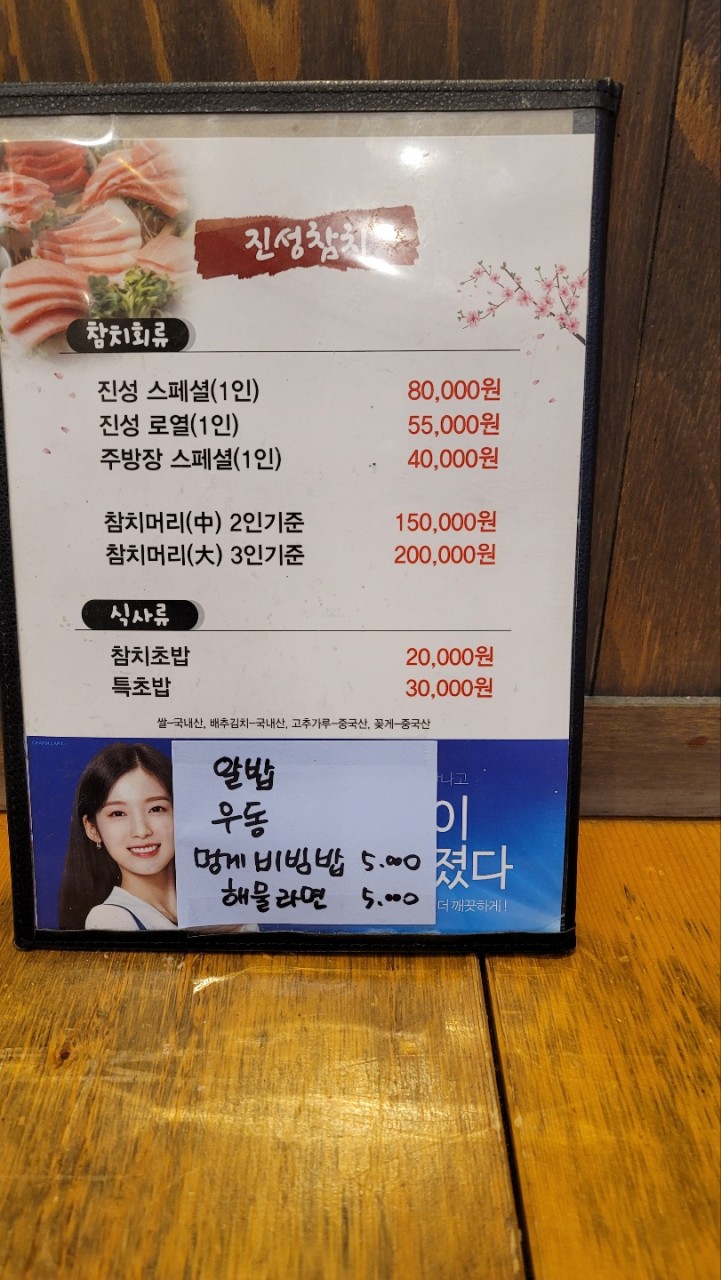 진성참치
참치회류
진성 스페셜(1인) 80,000원
진성 로열(1인) 55,000원
주방장 스페셜(1인) 40,000원
참치머리(中) 2인기준 150,000원
참치머리(大) 3인기준 200,000원
식사류
참치초밥 20,000원
특초밥 30,000원
쌀-국내산, 배추김치-국내산, 고추가루-중국산, 꽃게-중국산
알밥
우동
멍게비빔밥 5.000
해물라면 5.000
나고
이
졌다
더 깨끗하게!